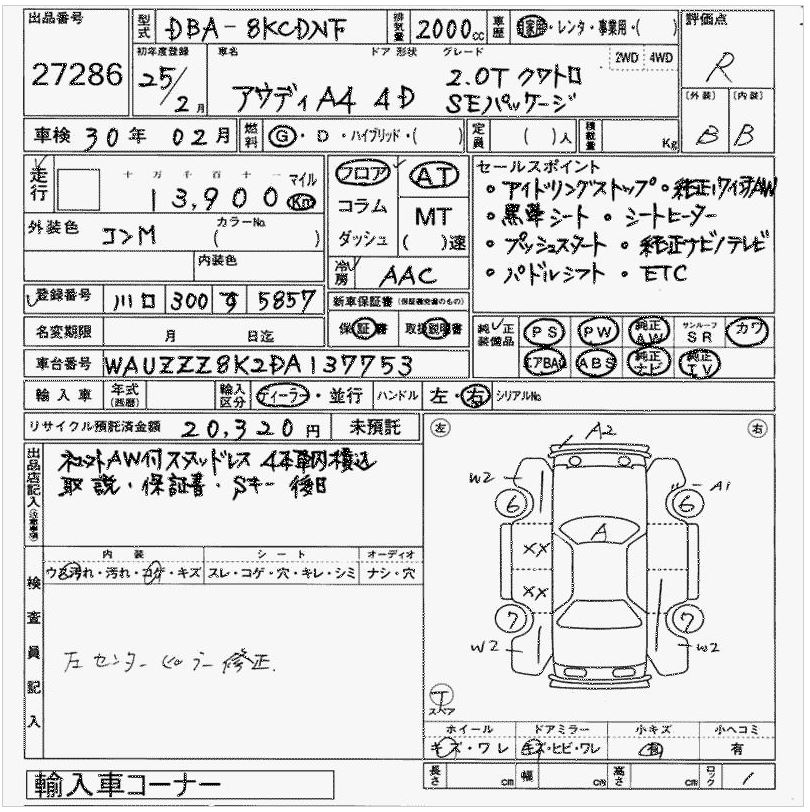 出品番号 27286
型式 DBA-8KCDNF 排気量 2000cc 車歴 自家用・レンタ・事業用・( )
評価点 R
初年度登録 25/2月 車名 アウディA4 4D ドア 形状 グレード 2WD 4WD
2.0T クワトロ
SEパッケージ
(外装) B (内装) B
車検 30年 02月 燃料 G・D・ハイブリッド・( ) 定員 ( )人 積載量 Kg
走行 十万千百十一 13,900 マイル Km
フロア AT
コラム MT
ダッシュ ( )速
セールスポイント
・アイドリングストップ・純正17インチAW
・黒革シート ・シートヒーター
・プッシュスタート ・純正ナビ/テレビ
・パドルシフト ・ETC
外装色 コンM カラーNo. ( )
内装色
冷房 AAC
登録番号 川口 300 す 5857
新車保証書 (保証継続のもの)
保証書 取扱説明書
名変期限 月 日迄
純正装備品 PS PW 純正AW サンルーフSR カワ
エアBAG ABS 純正ナビ 純正TV
車台番号 WAUZZZ8K2DA137753
輸入車 年式(西暦) 輸入区分 ディーラー・並行 ハンドル 左・右 シリアルNo.
リサイクル預託済金額 20,320円 未預託
出品店記入(注意事項)
ネット AW付スタッドレス 4本車内積込
取説・保証書・Sキー 後日
内装 シート オーディオ
ウス汚れ・汚れ・コゲ・キズ スレ・コゲ・穴・キレ・シミ ナシ・穴
検査員記入
左センターピラー修正.
左 右
A2
W2 6 6 A1
A
XX
XX
7 7
W2 W2
T
スペア
ホイール ドアミラー 小キズ 小ヘコミ
キズ・ワレ キズ・ヒビ・ワレ 有 有
輸入車コーナー
長さ cm 幅 cm 高さ cm ロック /